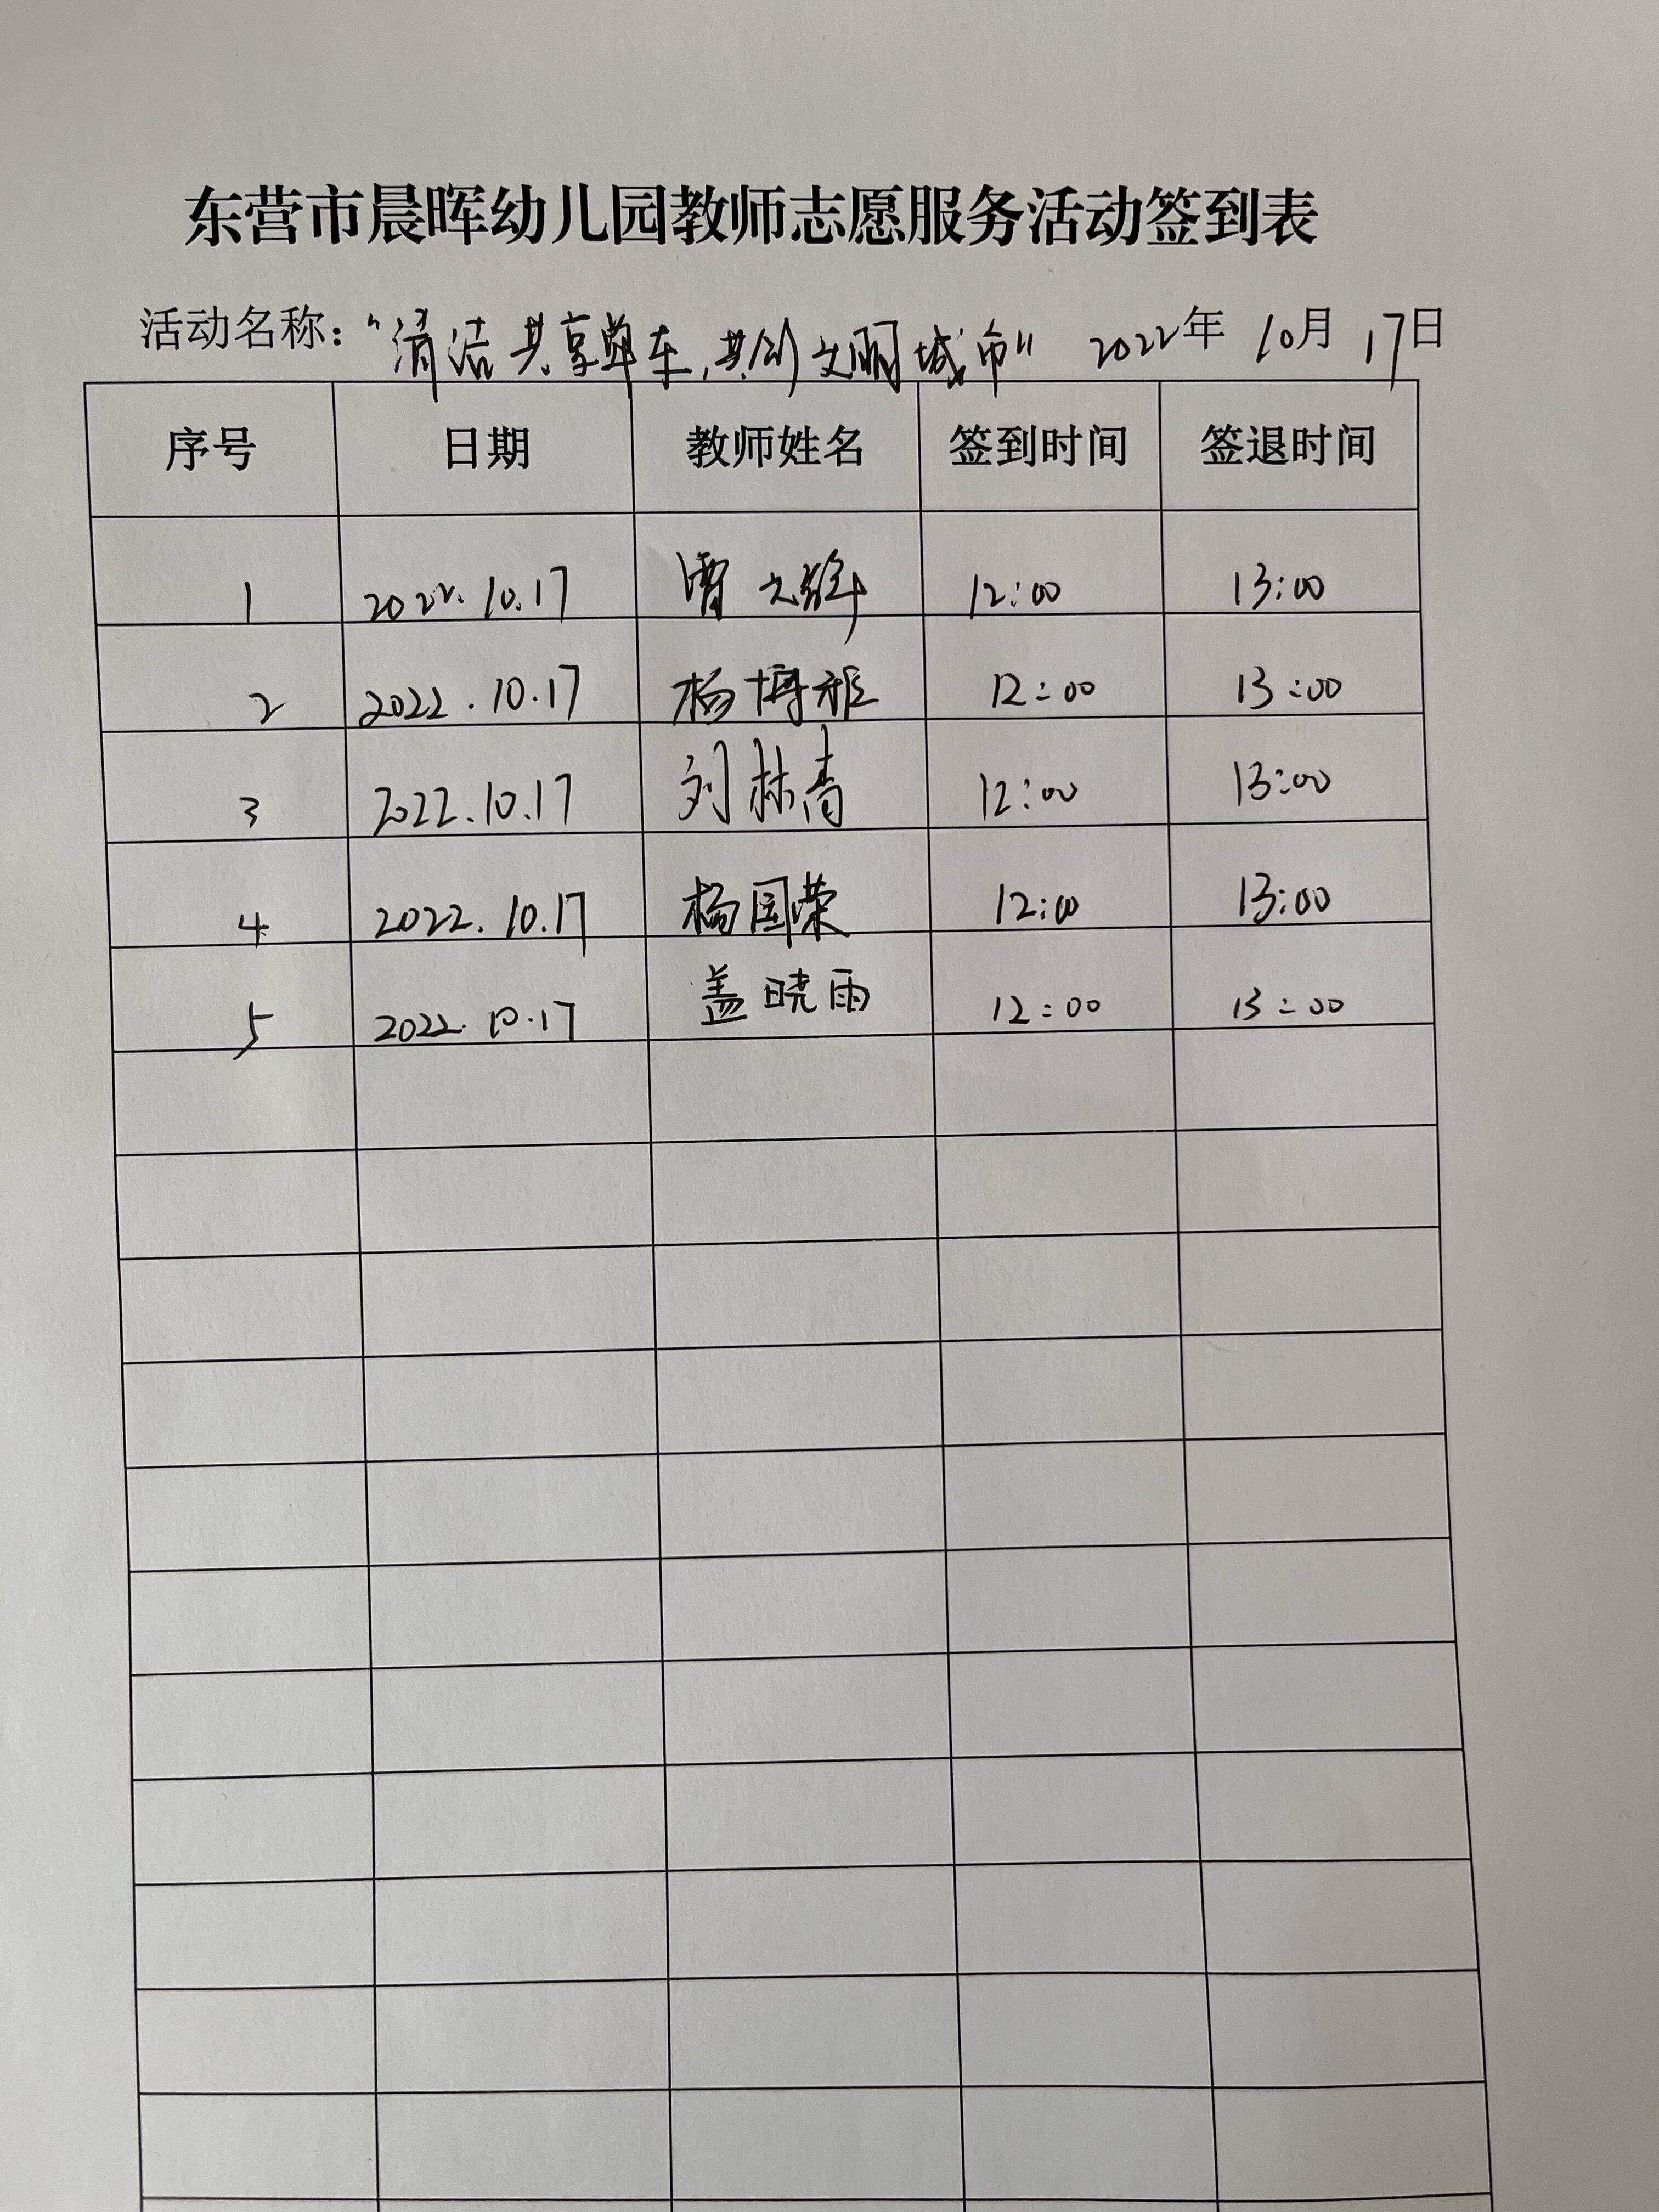 东营市晨晖幼儿园教师志愿服务活动签到表
活动名称："清洁共享单车,共创文明城市" 2022年 10月 17日
序号 日期 教师姓名 签到时间 签退时间
1 2022.10.17 12:00 13:00
2 2022.10.17 杨博雅 12:00 13:00
3 2022.10.17 刘林青 12:00 13:00
4 2022.10.17 杨国荣 12:00 13:00
5 2022.10.17 盖晓雨 12:00 13:00